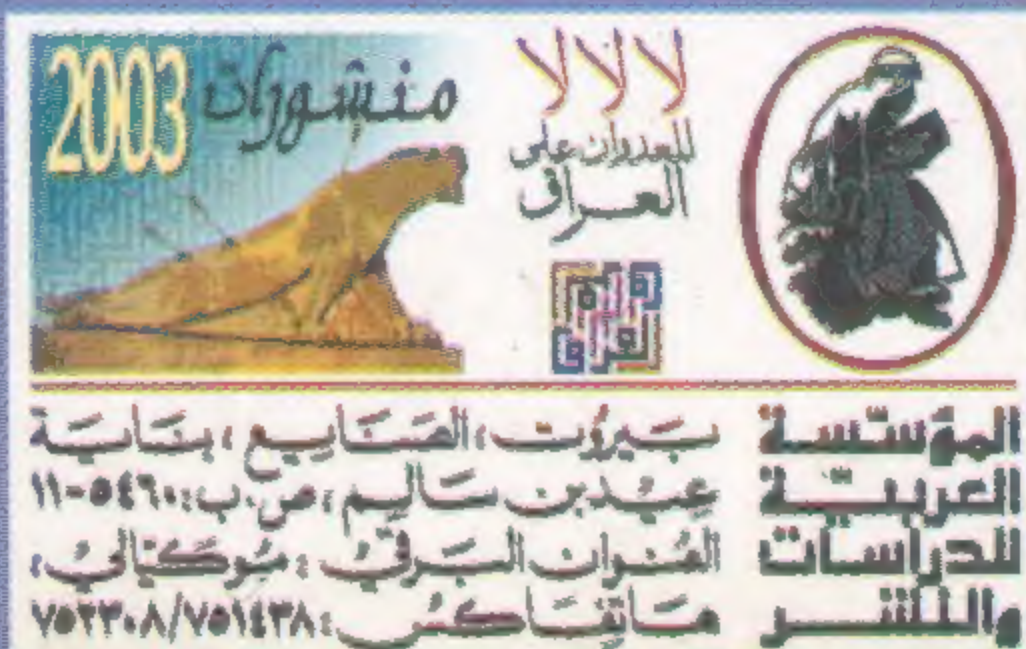 لا لا لا
للعدوان على
العراق
منشورات
2003
المؤسسة
العربية
للدراسات
والنشر
بيروت، الصنايع، بناية
عيد بن سالم، ص.ب: ٥٤٦٠-١١
العنوان البرقي: موكيالي،
هاتفاكس: ٧٥٢٣٠٨/٧٥١٤٣٨